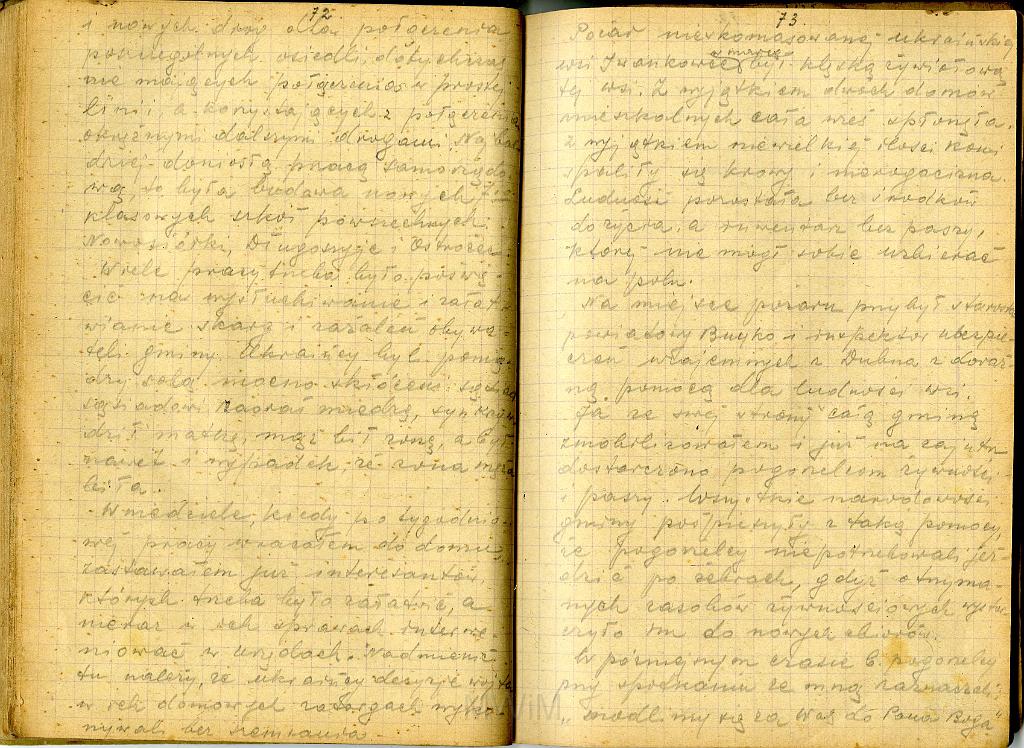 72
i nowych dróg dla połączenia
poszczególnych osiedli, dotychczas
nie mających połączenia w prostej
linii, a korzystających z połączenia
okrężnymi dalszymi drogami. Najbar
dziej doniosłą pracą samorządo
wą, to była budowa nowych 7-o
klasowych szkół powszechnych:
Nowosiółki, Długoszyje i Ostrożec.
Wiele pracy trzeba było poświę
cić na wysłuchiwanie i załat
wianie skarg i zażaleń obywa
teli gminy. Ukraińcy byli pomię
dzy sobą mocno skłóceni: sąsiad
sąsiadowi zaorał miedzę, syn
dził matkę, mąż bił żonę, a był
nawet i wypadek, że żona męża
biła.
W niedziele, kiedy po tygodnio
wej pracy wracałem do domu,
zastawałem już interesantów,
których trzeba było załatwić, a
nieraz w ich sprawach interwe
niować w urzędach. Nadmienić
tu należy, że ukraińcy decyzje wójta
w ich domowych zatargach wyko
nywali bez szemrania.
73
Pożar nieskomasowanej ukraińskiej
wsi Iwankowce w marcu był klęską żywiołową
tej wsi. Z wyjątkiem dwóch domów
mieszkalnych cała wieś spłonęła.
Z wyjątkiem niewielkiej ilości koni
spaliły się krowy i nierogacizna.
Ludność pozostała bez środków
do życia, a inwentarz bez paszy,
której nie mógł sobie uzbierać
na polu.
Na miejsce pożaru przybył starosta
powiatowy Bucyko i inspektor ubezpie
czeń wzajemnych z Dubna z doraź
ną pomocą dla ludności wsi.
Ja ze swej strony całą gminę
zmobilizowałem i już na zajutrz
dostarczono pogorzelcom żywności
i paszy. Wszystkie narodowości
gminy pośpieszyły z taką pomocą,
że pogorzelcy niepotrzebowali jeź
dzić po żebrach, gdyż otrzyma
nych zasobów żywnościowych wystar
czyło im do nowych zbiorów.
W późniejszym czasie b. pogorzelcy
przy spotkaniu ze mną zaznaczali:
"modlimy się za Was do Pana Boga"